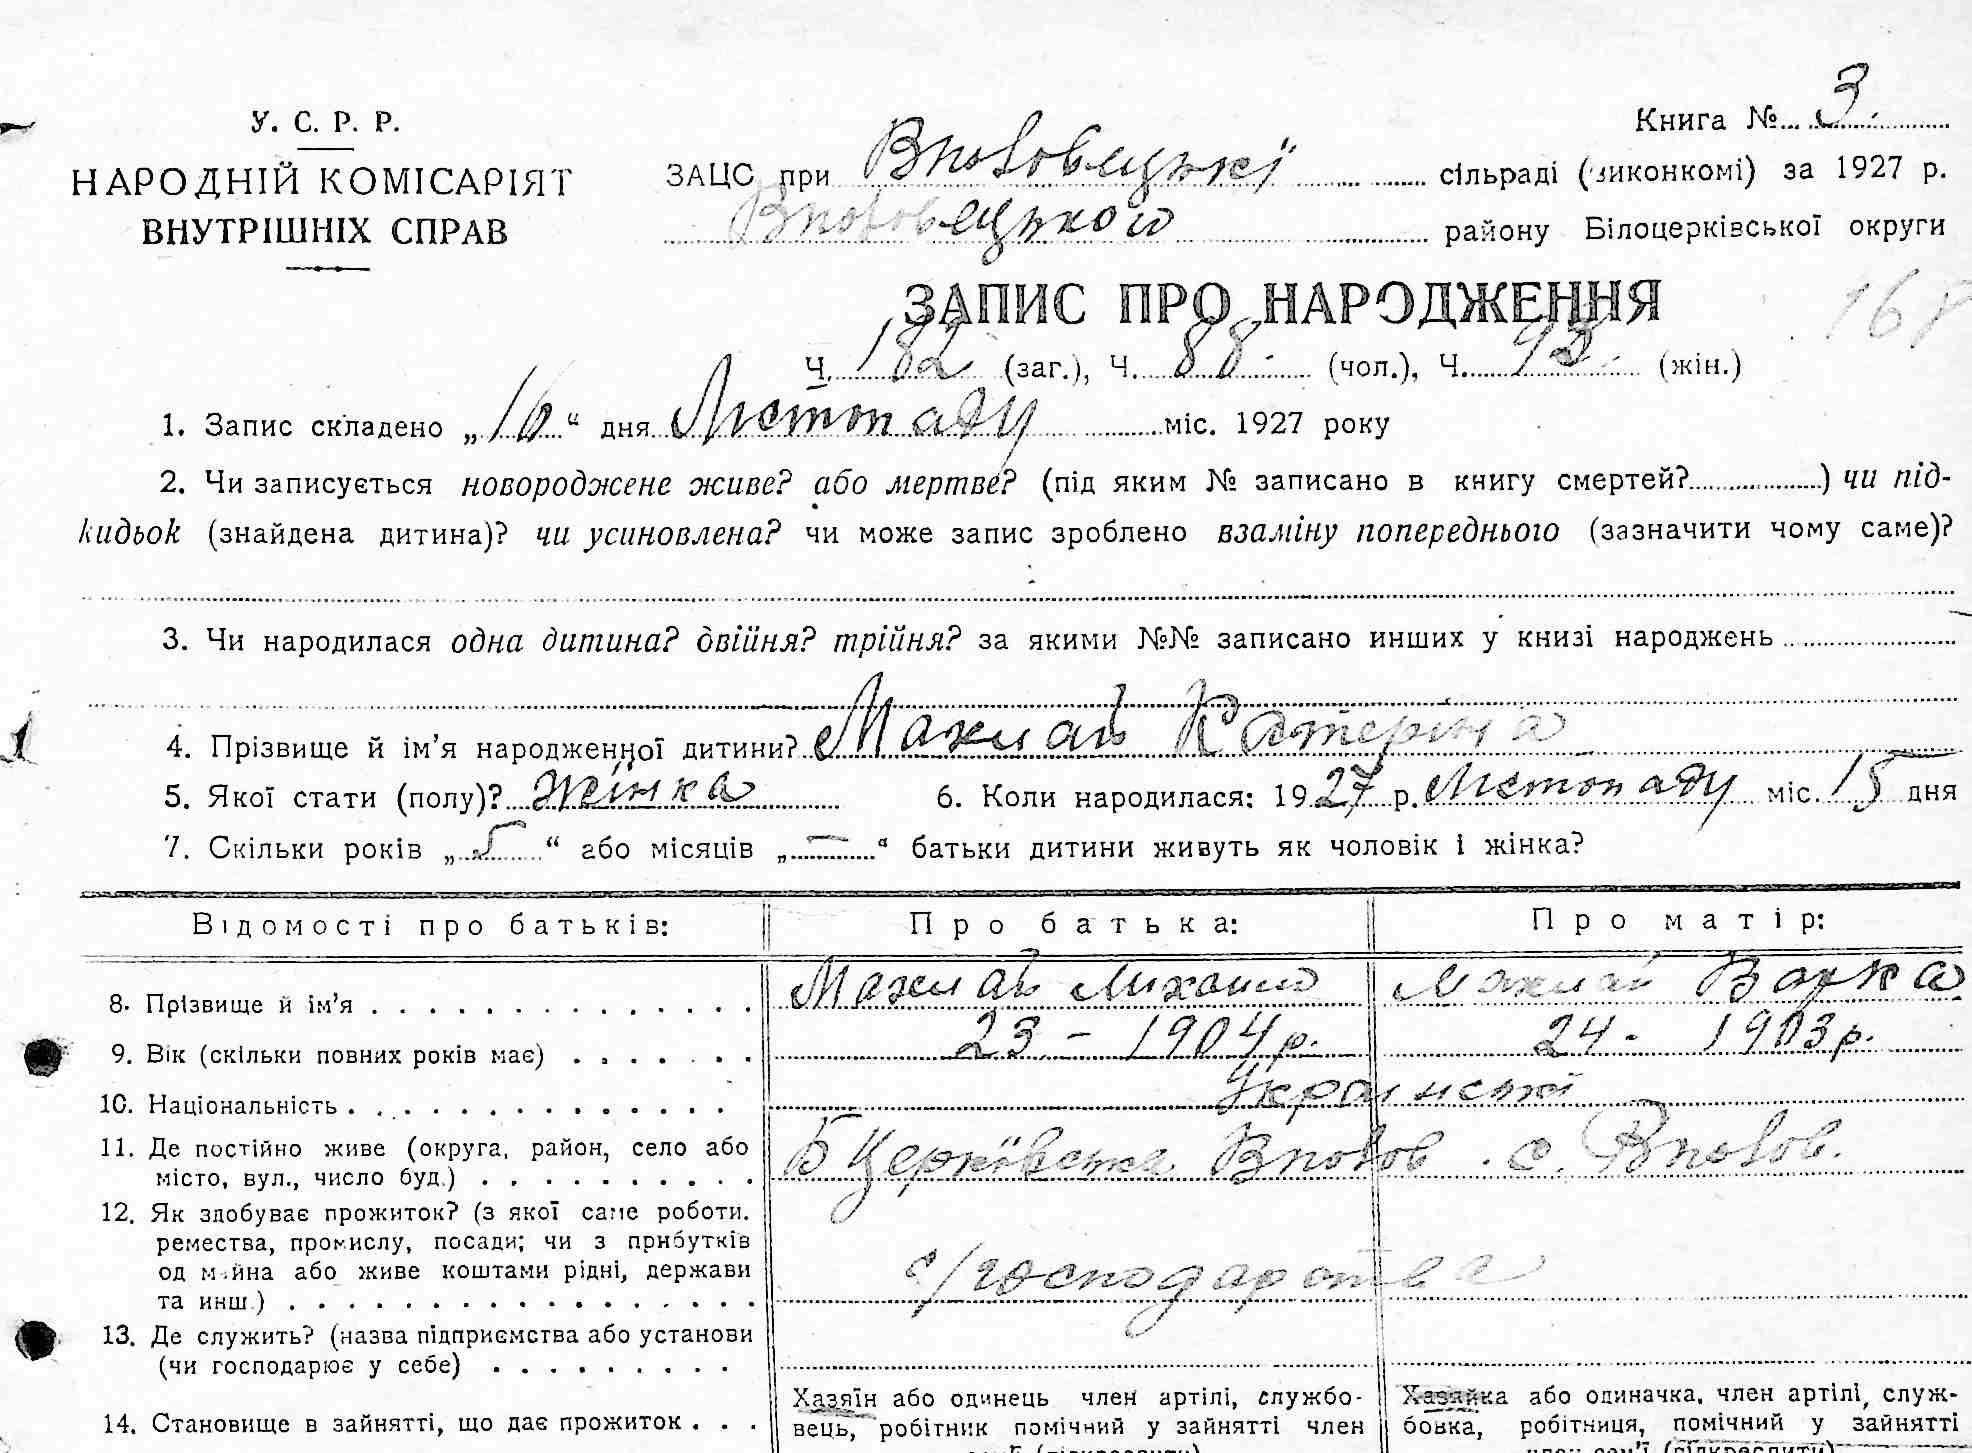 У. С. Р. Р.
НАРОДНІЙ КОМІСАРІЯТ
ВНУТРІШНІХ СПРАВ
Книга № 3.
ЗАЦС при Вполовецькії сільраді (виконкомі) за 1927 р.
Вполовецького району Білоцерківської округи
ЗАПИС ПРО НАРОДЖЕННЯ
168
Ч. 182 (заг.), Ч. 88. (чол.), Ч. 93. (жін.)
1. Запис складено „16“ дня Лістопаду міс. 1927 року
2. Чи записується новороджене живе? або мертве? (під яким № записано в книгу смертей?) чи під-
кидьок (знайдена дитина)? чи усиновлена? чи може запис зроблено взаміну попереднього (зазначити чому саме)?
3. Чи народилася одна дитина? двійня? трійня? за якими №№ записано инших у книзі народжень
4. Прізвище й ім’я народженної дитини? Махлай Катеріна
5. Якої стати (полу)? Жінка 6. Коли народилася: 1927 р. Лістопаду міс. 15 дня
7. Скільки років „5“ або місяців „—“ батьки дитини живуть як чоловік і жінка?
Відомості про батьків: Про батька: Про матір:
8. Прізвище й ім’я . . . . . . . . . . . . . . Махлай Михайло Махлай Варка
9. Вік (скільки повних років має) . . . . . . . 23 – 1904 р. 24 - 1903 р.
10. Національність . . . . . . . . . . . . . . Українські
11. Де постійно живе (округа, район, село або
місто, вул., число буд.) . . . . . . . . . . Б Церківська Вполов. с. Вполов.
12. Як здобуває прожиток? (з якої саме роботи,
ремества, промислу, посади; чи з прибутків
од майна або живе коштами рідні, держави
та инш.) . . . . . . . . . . . . . . . . . с/господарства
13. Де служить? (назва підприємства або установи
(чи господарює у себе) . . . . . . . . .
14. Становище в зайнятті, що дає прожиток . . .
Хазяїн або одинець член артілі, службо-
вець, робітник помічний у зайнятті член
Хазяйка або одиначка, член артілі, служ-
бовка, робітниця, помічний у зайнятті